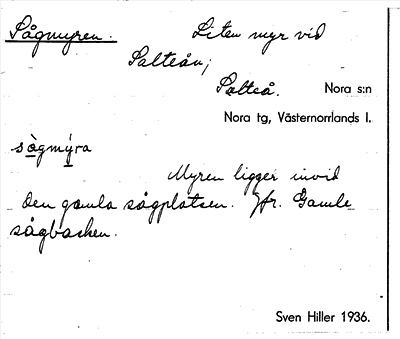 Sågmyren. Liten myr vid
Salteån;
Salteå. Nora s:n
Nora tg, Västernorrlands l.
sågmýra
Myren ligger invid
den gamla sågplatsen. Jfr. Gamle
sågbacken.
Sven Hiller 1936.